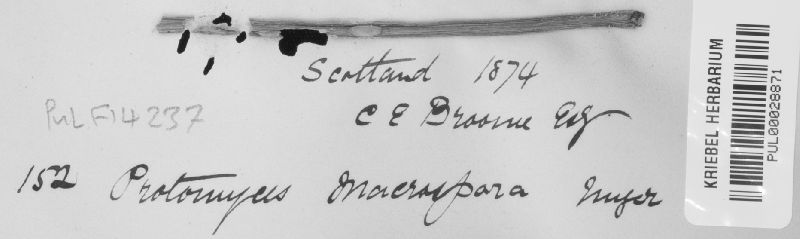 Scotland 1874
PUL F14237
C E Broome Esq
152 Protomyces Macrospora Unger
KRIEBEL HERBARIUM
PUL00028871